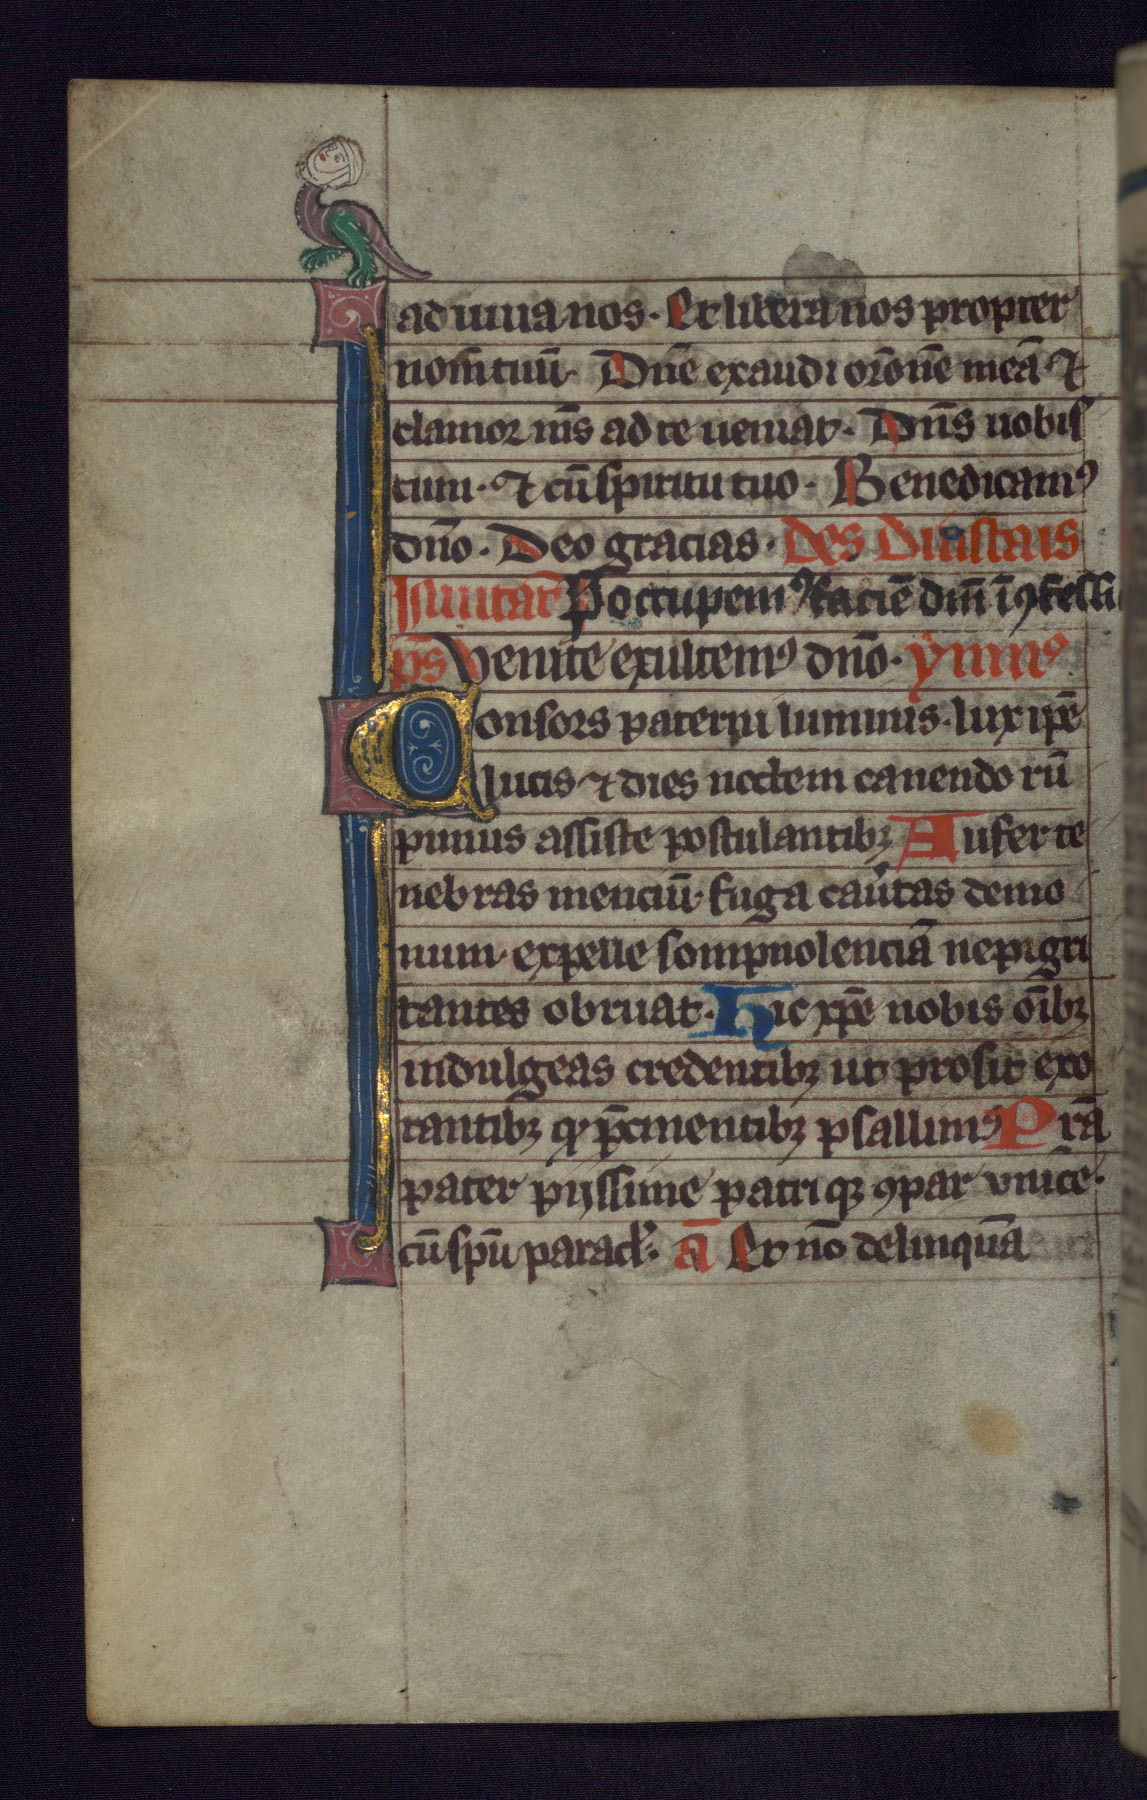 adiuua nos. Et libera nos propter
nom̄ tuū. Dn̄e exaudi or̄onē meā ⁊
clamor m̄s ad te ueniat. Dn̄s uobis
cum. ⁊ cū spiritu tuo. Benedicamꝰ
dn̄o. Deo gracias. Des
P̄occupemꝰ faciē dn̄i ī ꝯfessi
p̄s Venite exultemꝰ dn̄o. ymnꝰ
Consors paterni luminis. lux ip̄e
lucis ⁊ dies noctem canendo rū
pimus assiste postulantibꝫ Aufer te
nebras menciū. fuga cat̄uas demo
num. expelle sompnolenciā ne pigri
tantes obruat. Hic xp̄e nobis om̄ibꝫ
indulgeas credentibꝫ ut prosit exo
rantibꝫ qͦ p̄cinentibꝫ psallimꝰ P̄ra
pater pijssime patrique ꝯpar vnice.
cū sp̄u paracl'. ā Et nō delinquā